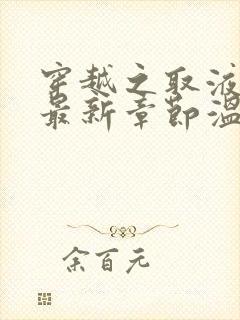 穿越之取液
最新章节温
余百元